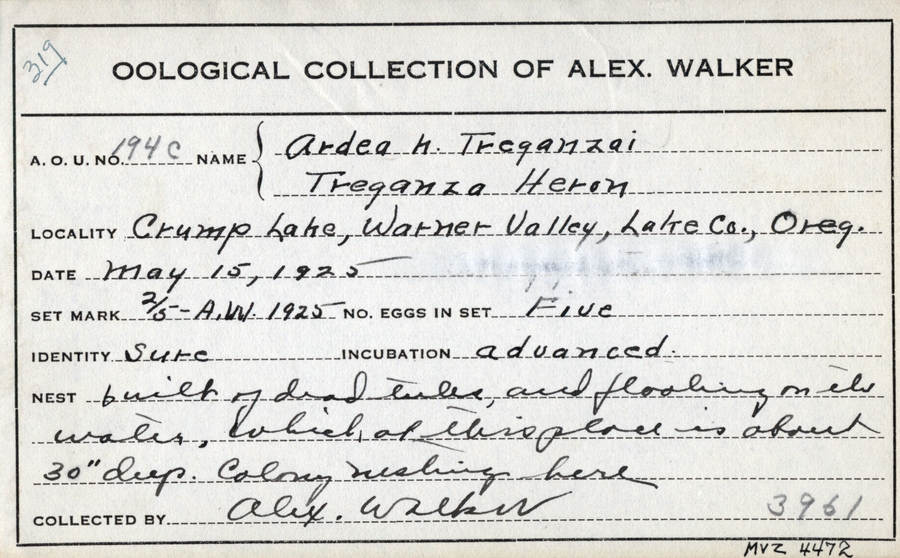 319
OOLOGICAL COLLECTION OF ALEX. WALKER
A. O. U. NO. 194c NAME { Ardea h. Treganzai
Treganza Heron
LOCALITY Crump Lake, Warner Valley, Lake Co., Oreg.
DATE May 15, 1925
SET MARK 2/5 - A.W. 1925 NO. EGGS IN SET Five
IDENTITY Sure INCUBATION advanced.
NEST built of dead tules, and floating on the
water, which at this place is about
30" deep. Colony nesting here
COLLECTED BY Alex. Walker 3961
MVZ 4472